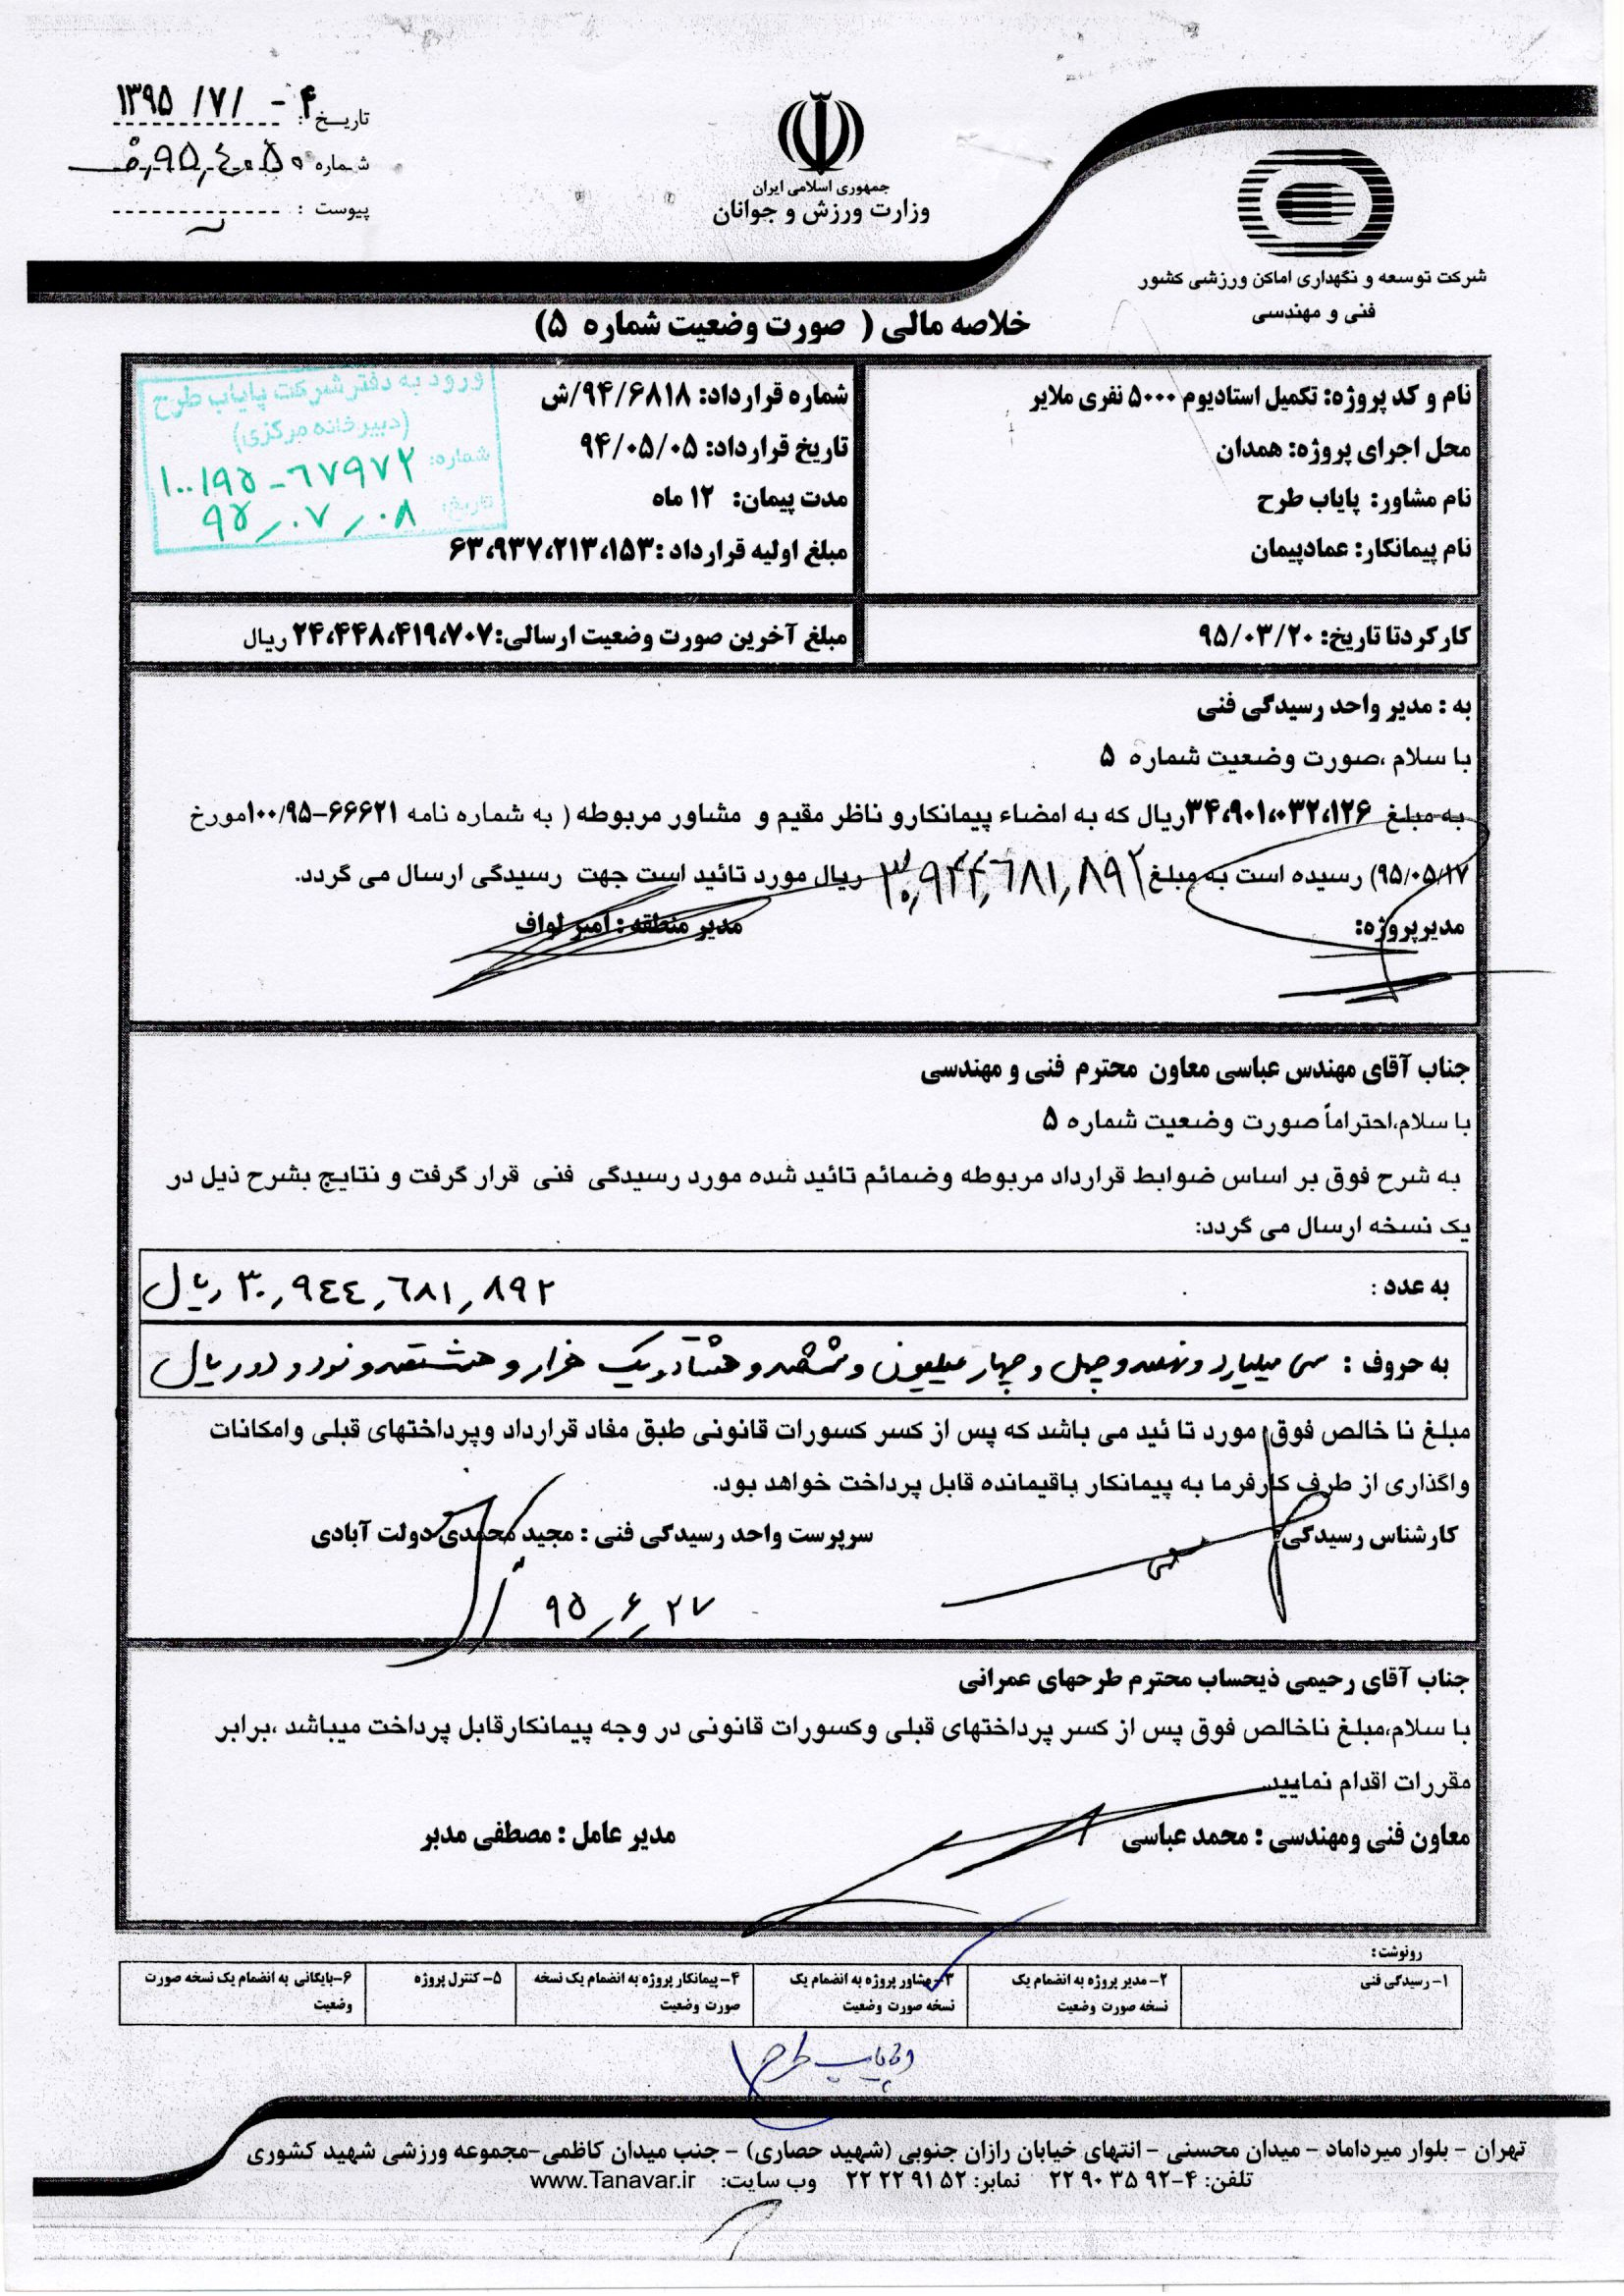 تاریخ: ۱۳۹۵/۷/-۴
شماره
پیوست :
جمهوری اسلامی ایران
وزارت ورزش و جوانان
شرکت توسعه و نگهداری اماکن ورزشی کشور
فنی و مهندسی
خلاصه مالی ( صورت وضعیت شماره ۵)
نام و کد پروژه: تکمیل استادیوم ۵۰۰۰ نفری ملایر
محل اجرای پروژه: همدان
نام مشاور: پایاب طرح
نام پیمانکار: عمادپیمان
شماره قرارداد: ۹۴/۶۸۱۸/ش
تاریخ قرارداد: ۹۴/۰۵/۰۵
مدت پیمان: ۱۲ ماه
مبلغ اولیه قرارداد :۶۳،۹۳۷،۲۱۳،۱۵۳
ورود به دفتر شرکت پایاب طرح
(دبیرخانه مرکزی)
شماره: ۱۰۰/۹۵-۶۷۹۷۲
تاریخ: ۹۵/۰۷/۰۸
کارکردتا تاریخ: ۹۵/۰۳/۲۰
مبلغ آخرین صورت وضعیت ارسالی:۲۴،۴۴۸،۴۱۹،۷۰۷ ریال
به : مدیر واحد رسیدگی فنی
با سلام ،صورت وضعیت شماره ۵
به مبلغ ۳۴،۹۰۱،۰۳۲،۱۲۶ریال که به امضاء پیمانکارو ناظر مقیم و مشاور مربوطه ( به شماره نامه ۶۶۶۲۱-۱۰۰/۹۵مورخ
۹۵/۰۵/۱۷) رسیده است به مبلغ ۳۰,۹۴۴,۶۸۱,۸۹۲ ریال مورد تائید است جهت رسیدگی ارسال می گردد.
مدیرپروژه:
مدیر منطقه : امیر لواف
جناب آقای مهندس عباسی معاون محترم فنی و مهندسی
با سلام،احتراماً صورت وضعیت شماره ۵
به شرح فوق بر اساس ضوابط قرارداد مربوطه وضمائم تائید شده مورد رسیدگی فنی قرار گرفت و نتایج بشرح ذیل در
یک نسخه ارسال می گردد:
به عدد : ۳۰,۹٤٤,٦۸۱,۸۹۲ ریال
به حروف : سی میلیارد و نهصد و چهل و چهار میلیون و ششصد و هشتاد و یک هزار و هشتصد و نود و دو ریال
مبلغ نا خالص فوق مورد تا ئید می باشد که پس از کسر کسورات قانونی طبق مفاد قرارداد وپرداختهای قبلی وامکانات
واگذاری از طرف کارفرما به پیمانکار باقیمانده قابل پرداخت خواهد بود.
کارشناس رسیدگی:
سرپرست واحد رسیدگی فنی : مجید محمدی دولت آبادی
۹۵/۶/۲۷
جناب آقای رحیمی ذیحساب محترم طرحهای عمرانی
با سلام،مبلغ ناخالص فوق پس از کسر پرداختهای قبلی وکسورات قانونی در وجه پیمانکارقابل پرداخت میباشد ،برابر
مقررات اقدام نمایید.
معاون فنی ومهندسی : محمد عباسی
مدیر عامل : مصطفی مدبر
رونوشت:
۱- رسیدگی فنی
۲- مدیر پروژه به انضمام یک
نسخه صورت وضعیت
۳- مشاور پروژه به انضمام یک
نسخه صورت وضعیت
۴- پیمانکار پروژه به انضمام یک نسخه
صورت وضعیت
۵- کنترل پروژه
۶-بایگانی به انضمام یک نسخه صورت
وضعیت
پایاب طرح
تهران - بلوار میرداماد - میدان محسنی - انتهای خیابان رازان جنوبی (شهید حصاری) - جنب میدان کاظمی-مجموعه ورزشی شهید کشوری
تلفن: ۴-۹۲ ۳۵ ۹۰ ۲۲ نمابر: ۵۲ ۹۱ ۲۲ ۲۲ وب سایت: www.Tanavar.ir